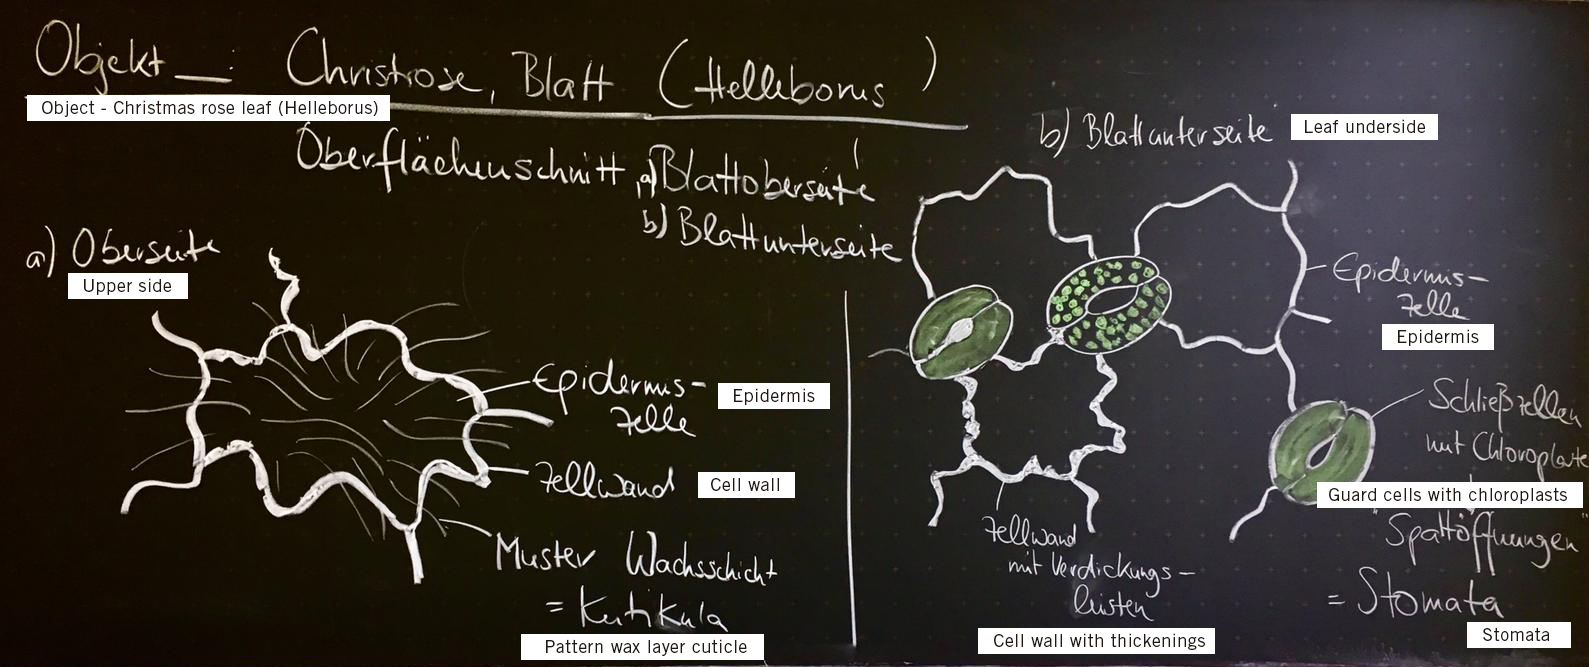 Objekt : Christrose, Blatt (Helleborus)
Object - Christmas rose leaf (Helleborus)
Oberflächenschnitt, a) Blattoberseite
b) Blattunterseite
a) Oberseite
Upper side
Epidermis-
zelle
Epidermis
Zellwand
Cell wall
Muster Wachsschicht
= Kutikula
Pattern wax layer cuticle
b) Blattunterseite
Leaf underside
Epidermis-
zelle
Epidermis
Schließzellen
mit Chloroplaste
Guard cells with chloroplasts
"Spaltöffnungen"
= Stomata
Stomata
Zellwand
mit Verdickungs-
leisten
Cell wall with thickenings